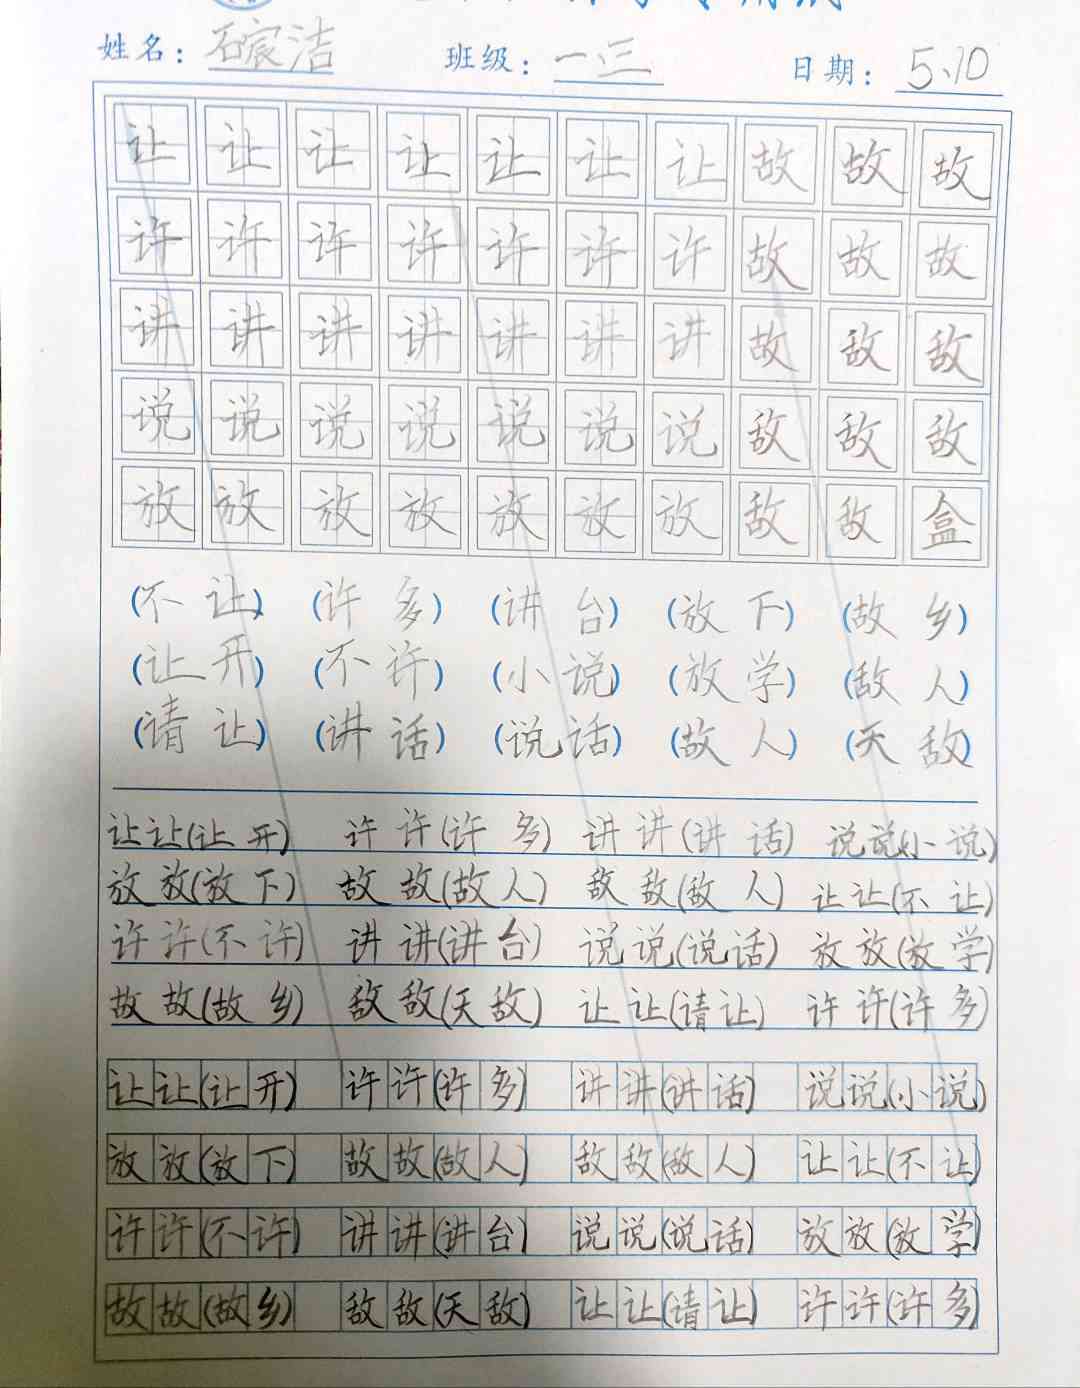 姓名：石宸洁 班级：一.三 日期：5.10
让 让 让 让 让 让 让 故 故 故
许 许 许 许 许 许 许 故 故 故
讲 讲 讲 讲 讲 讲 讲 故 敌 敌
说 说 说 说 说 说 说 敌 敌 敌
放 放 放 放 放 放 放 敌 敌 盒
(不让) (许多) (讲台) (放下) (故乡)
(让开) (不许) (小说) (放学) (敌人)
(请让) (讲话) (说话) (故人) (天敌)
让让(让开) 许许(许多) 讲讲(讲话) 说说(小说)
放放(放下) 故故(故人) 敌敌(敌人) 让让(不让)
许许(不许) 讲讲(讲台) 说说(说话) 放放(放学)
故故(故乡) 敌敌(天敌) 让让(请让) 许许(许多)
让让(让开) 许许(许多) 讲讲(讲话) 说说(小说)
放放(放下) 故故(故人) 敌敌(敌人) 让让(不让)
许许(不许) 讲讲(讲台) 说说(说话) 放放(放学)
故故(故乡) 敌敌(天敌) 让让(请让) 许许(许多)